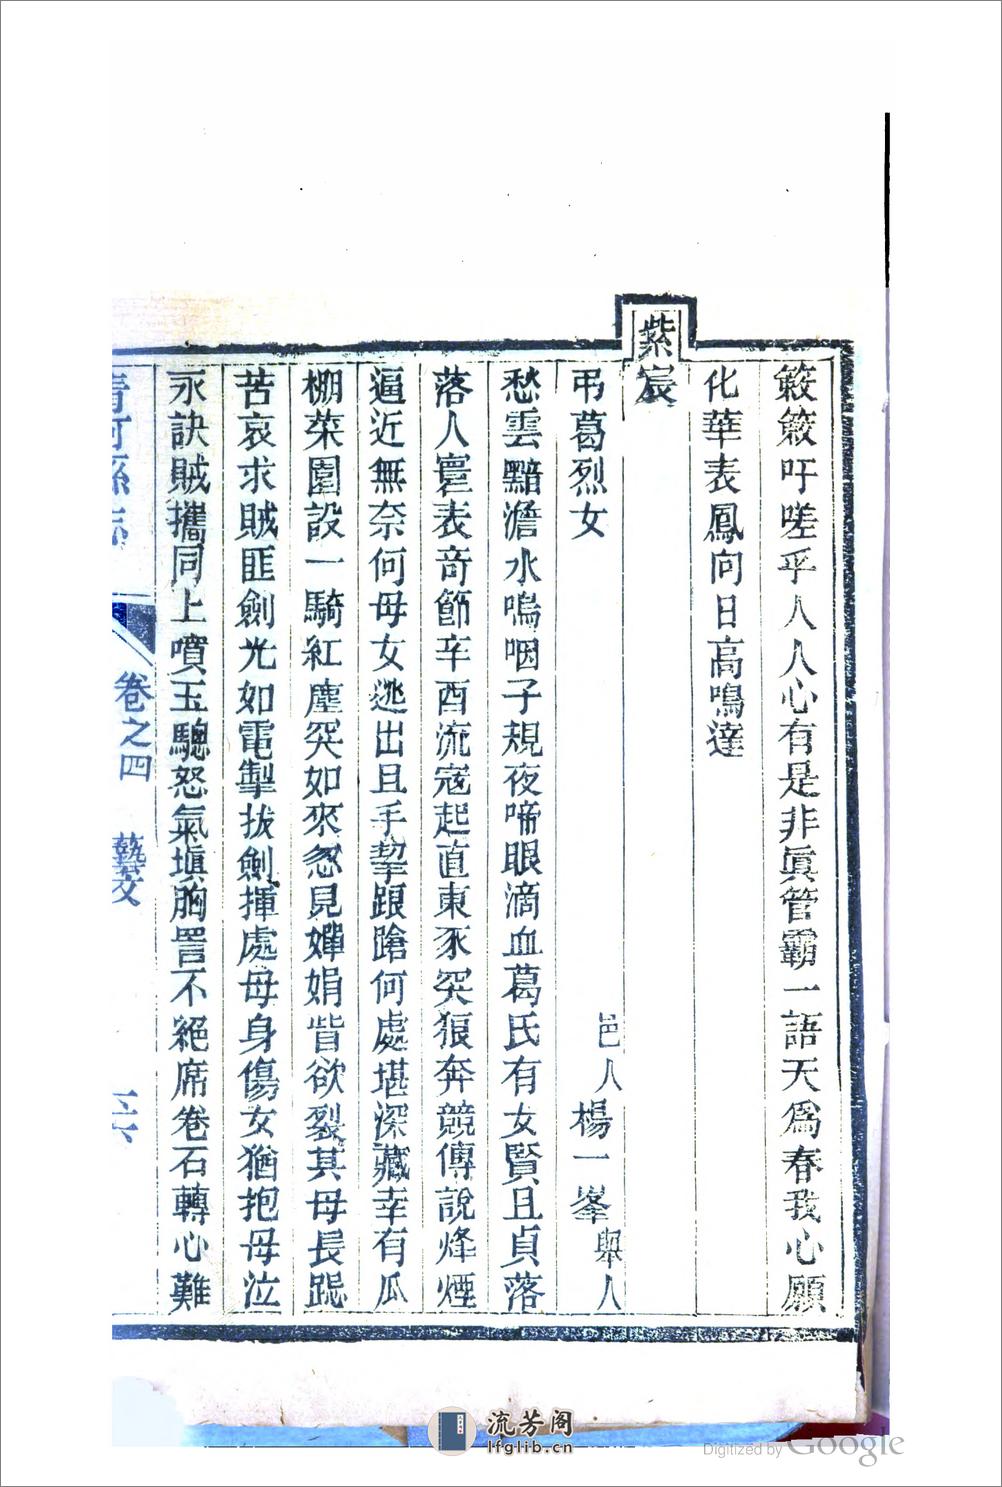 簌簌吁嗟乎人人心有是非眞管霸一語天爲春我心願
化華表鳳向日高鳴達
紫宸
弔葛烈女
邑人楊一峯舉人
愁雲黯澹水嗚咽子規夜啼眼滴血葛氏有女賢且貞落
落人寰表奇節辛酉流寇起直東豕突狼奔競傳說烽煙
逼近無奈何母女逃出且手挈踉蹌何處堪深藏幸有瓜
棚菜圍設一騎紅塵突如來忽見嬋娟眥欲裂其母長跽
苦哀求賊匪劍光如電掣拔劍揮處母身傷女猶抱母泣
永訣賊攜同上噴玉驄怒氣塡胸詈不絕席卷石轉心難
清河縣志
卷之四
藝文
流芳阁
lfglib.cn
Digitized by Google